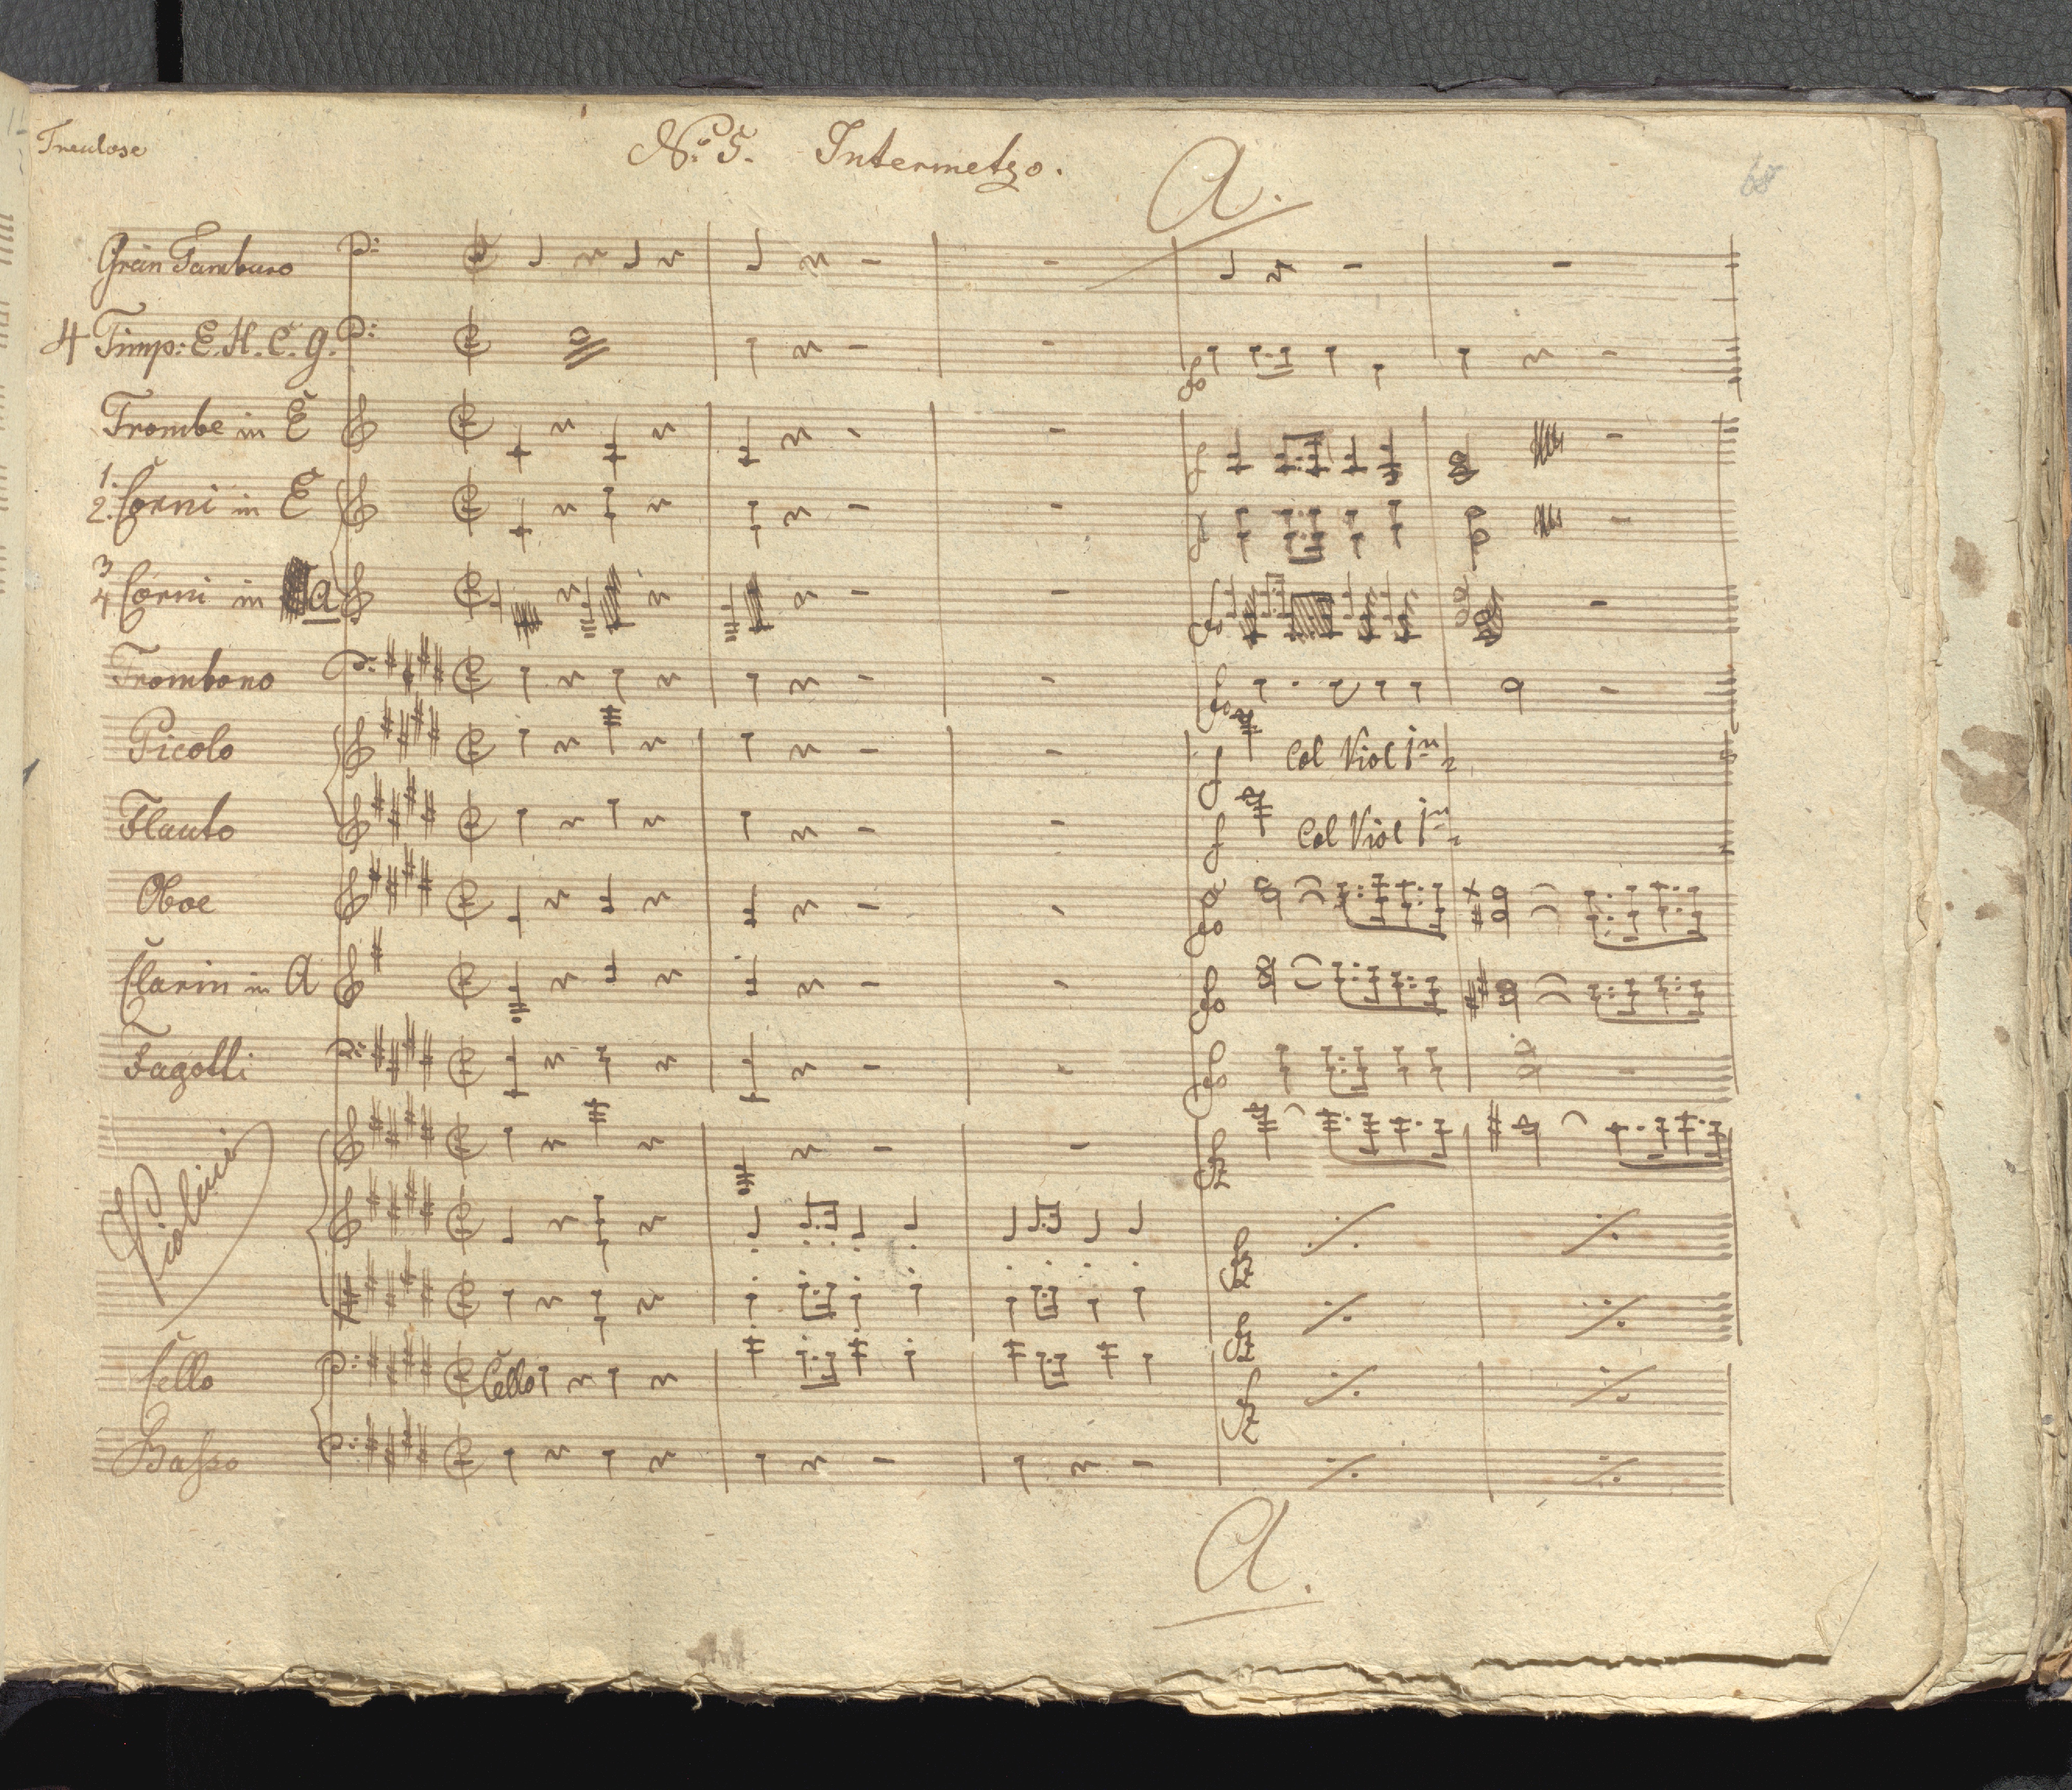 Treulose
No. 5. Intermetzo.
A.
68
Gran Tamburo
4 Timp: E. H. C. g.
Trombe in E
1.
2. Corni in E
3
4 Corni in a
Trombono
fo
Picolo
f Col Viol 1mo
Flauto
f Col Viol 1mo
Oboe
fo
Clarin in A
fo
Fagotti
fo
Violini
fz
fz
fz
Cello
Cello
fz
Basso
A.